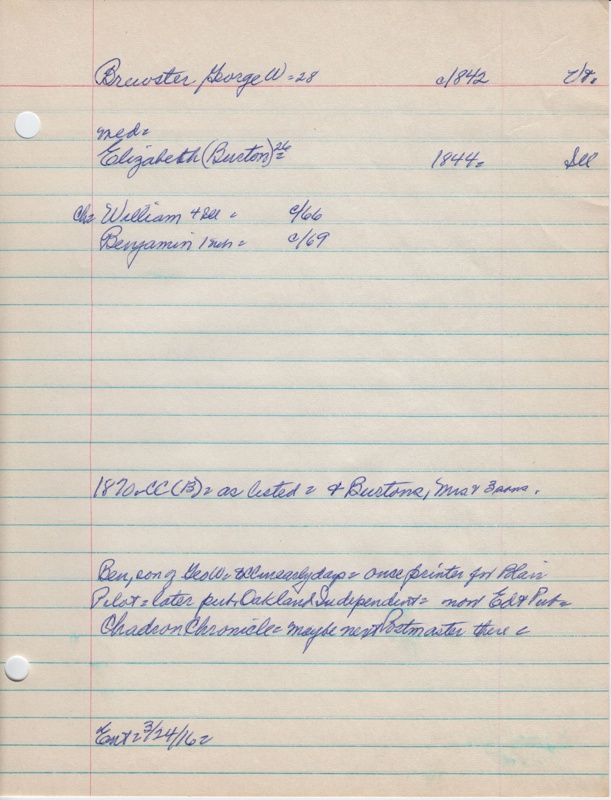 Brewster, George W = 28 c/1842 Vt.
med =
Elizabeth (Burton) 26 = 1844 = Ill
Ch = William 4 Ill = c/66
Benjamin 1 Neb = c/69
1870 CC (B) = as listed = & Burtons, Mrs & 3 sons.
Ben, son of Geo W = early days = once printer for Blair
Pilot = later pub. Oakland Independent = now Ed & Pub =
Chadron Chronicle = maybe next Postmaster there =
Ent = 3/24/16 =